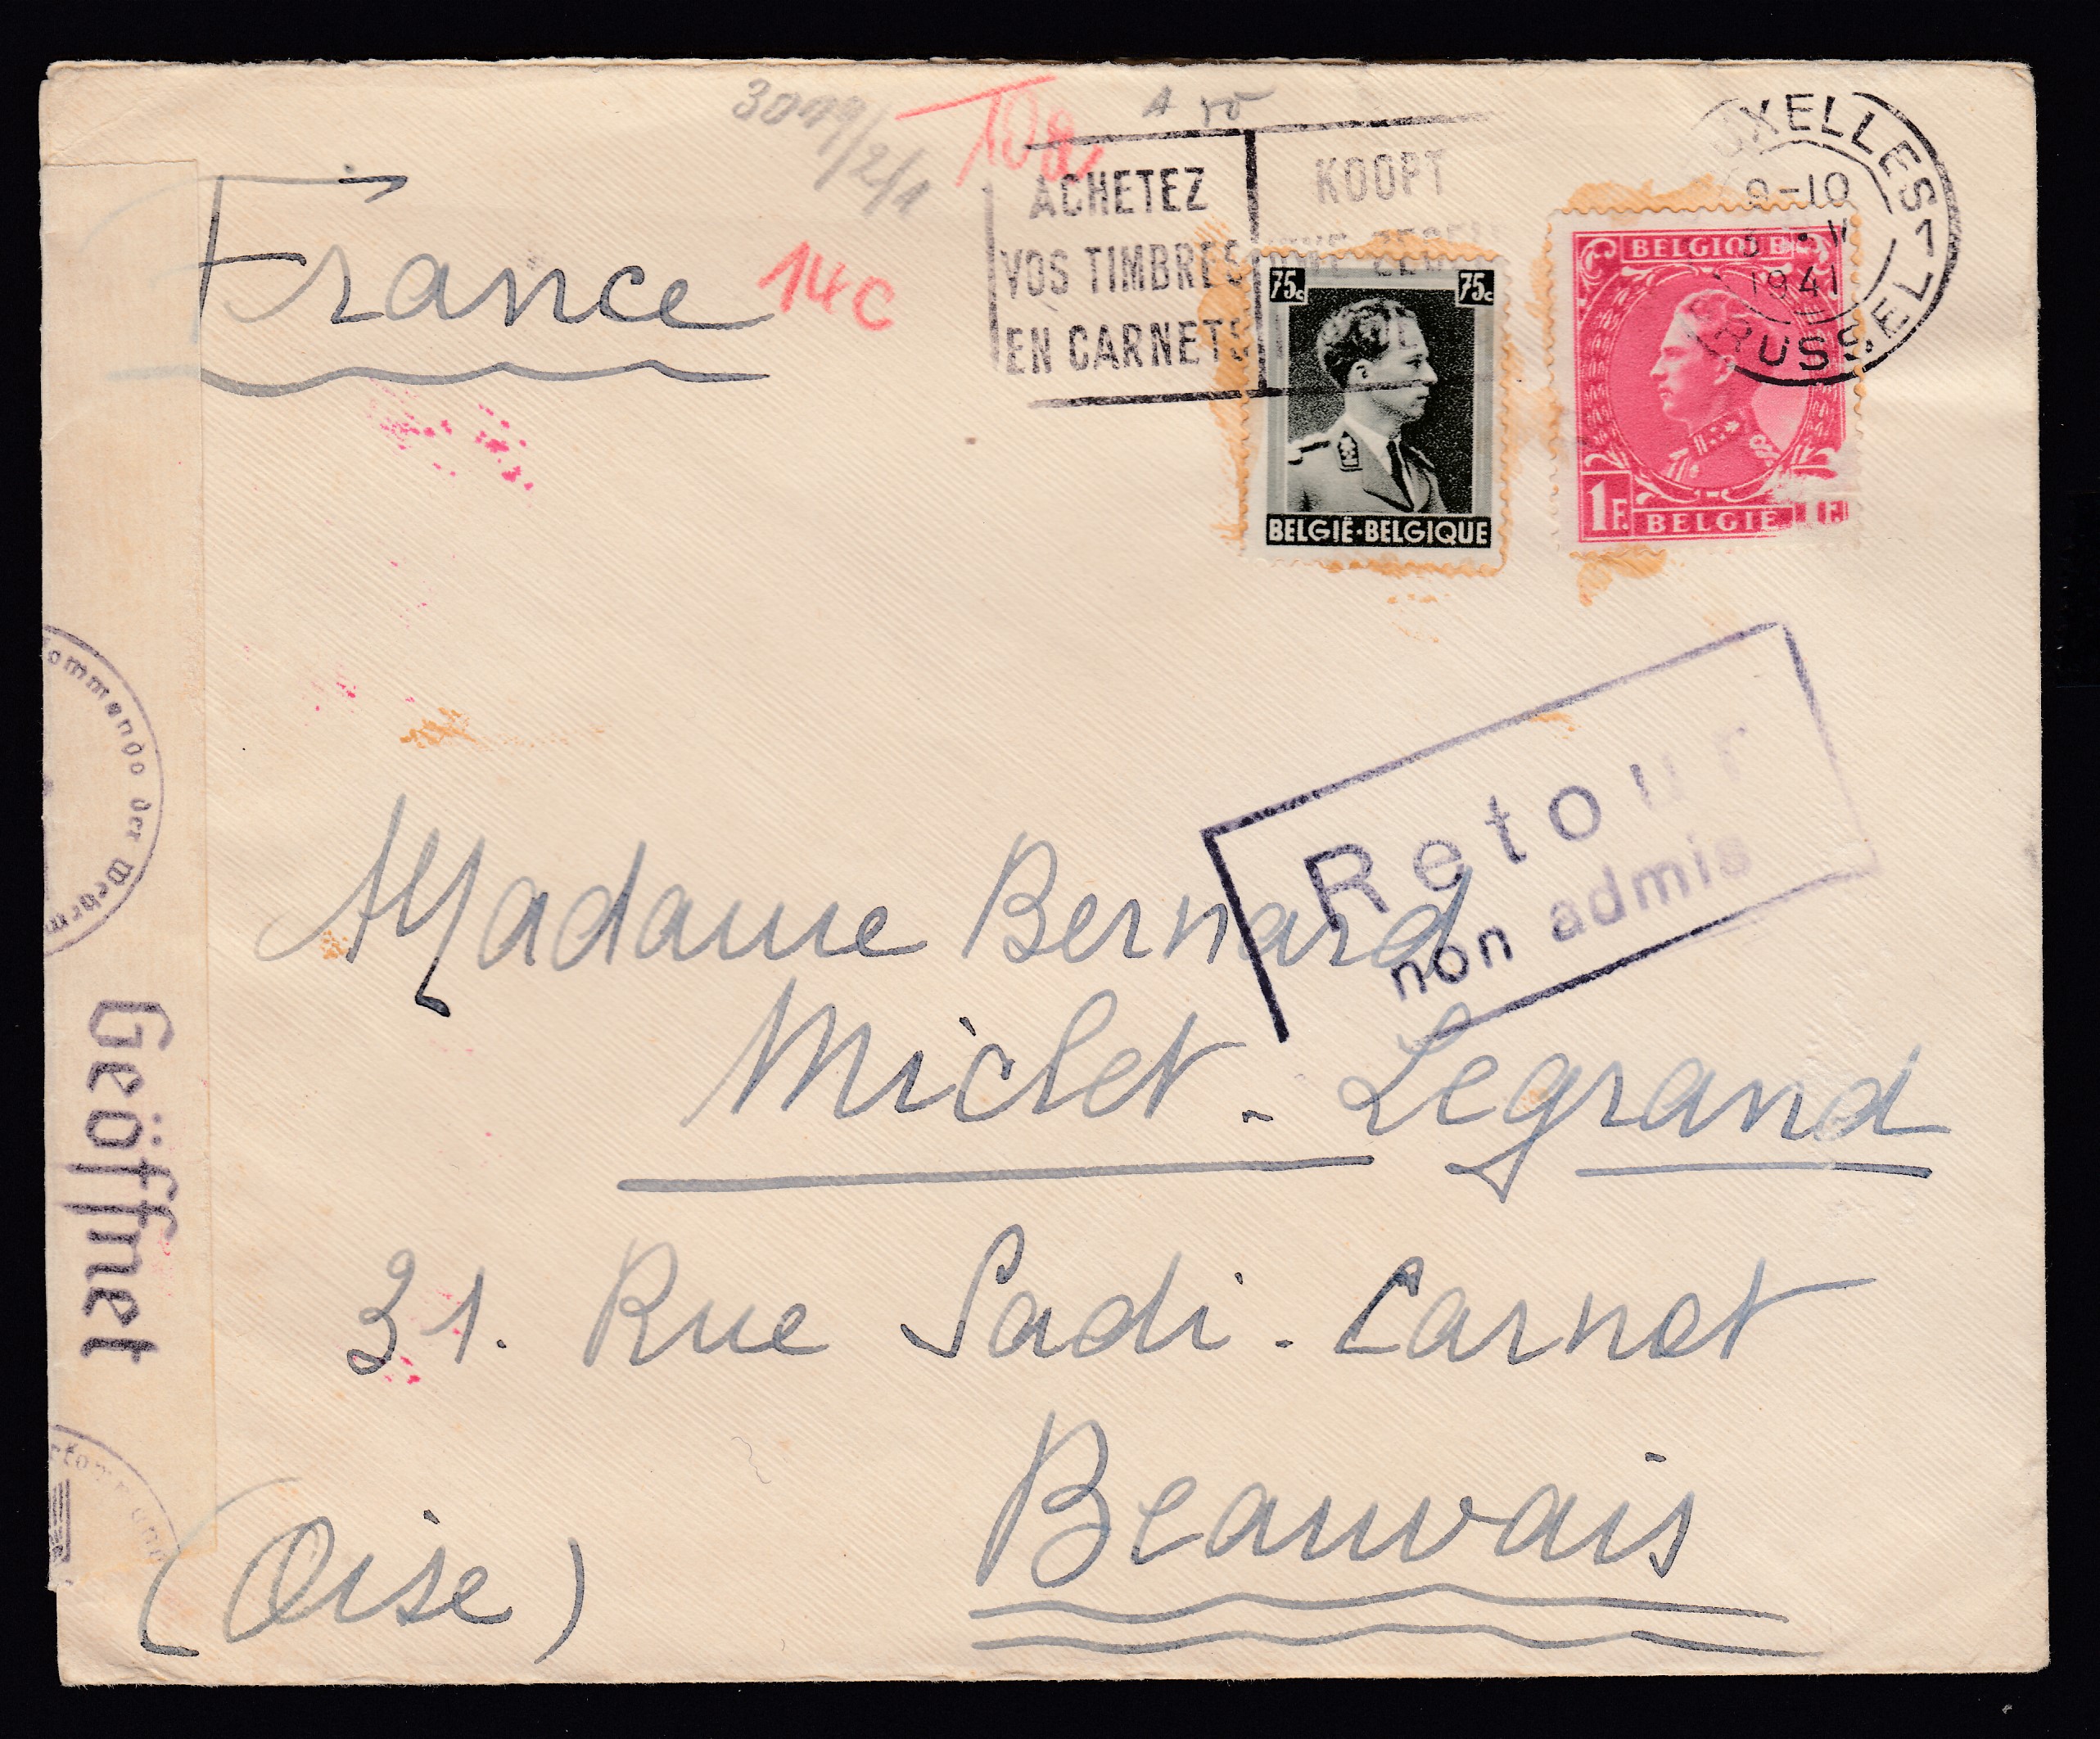 3009/2/1
France
14c
ACHETEZ
VOS TIMBRES
EN CARNETS
KOOPT
XELLES
-10
1941
RUSSEL
1
75c 75c
BELGIË·BELGIQUE
BELGIQUE
1F. BELGIË 1F.
Retour
non admis
Madame Bernard
Miclet-Legrand
31. Rue Sadi-Carnot
Beauvais
(Oise)
ommando der Wehrm
Geöffnet